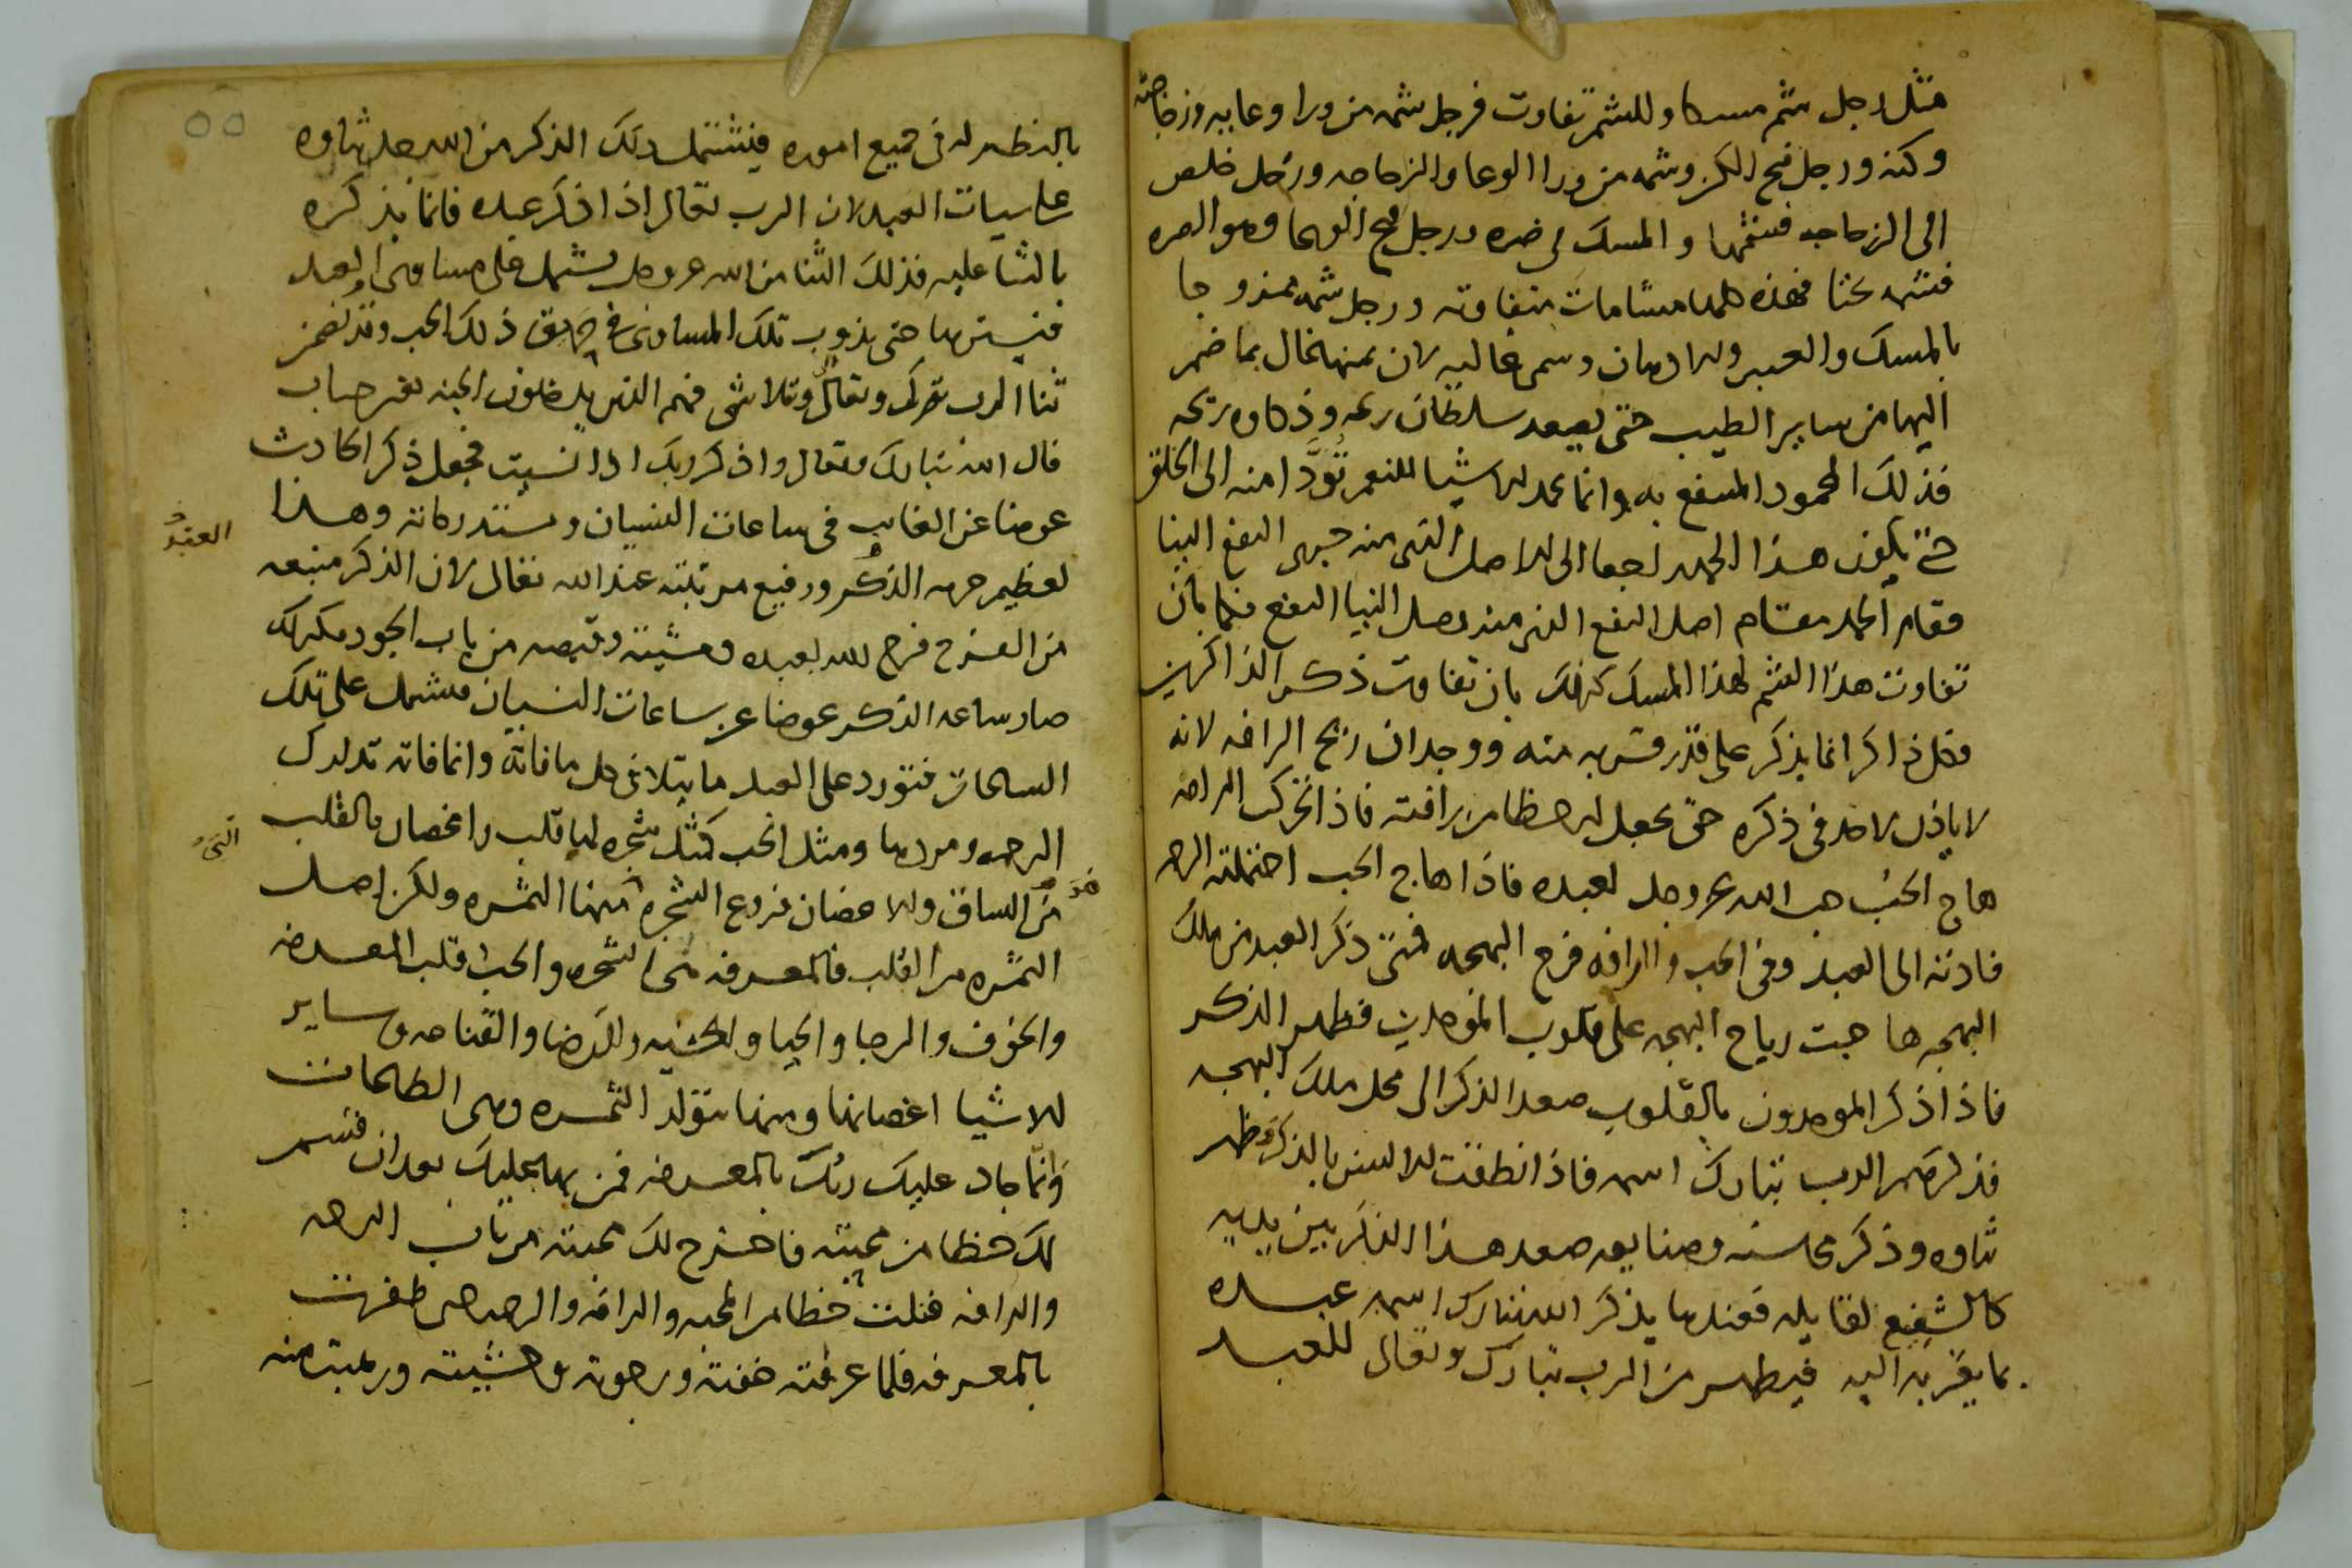 مثل رجل شم مسكا وللشم تفاوت فرجل شمه من ورا وعايه وزجاجته
وكنه ورجل فتح الكن وشمه من ورا الوعا والزجاجه ورجل خلص
الى الزجاجه فشمها والمسك في صره ورجل فتح الوعا وهو الصره
فشمه بحتا فهذه كلها مشامات متفاوته ورجل شمه ممزوجا
بالمسك والعنبر والادهان وسمى غاليه لان ثمنها غال بما ضم
اليها من ساير الطيب حتى يصعد سلطان ريحه وذكاوه ريحه
فذلك المحمود المنتفع به وانما حمد الاشيا للنعم تودا منه الى الخلق
حتى يكون هذا الحمد راجعا الى الاصل الذى منه جرى النفع الينا
فقام الحمد مقام اصل النفع الذى منه وصل الينا النفع فكما بان
تفاوت هذا الشم لهذا المسك كذلك بان تفاوت ذكر الذاكرين
فكل ذاكر انما يذكر على قدر قربه منه ووجدان ريح الرافه لانه
لا ياذن لاحد فى ذكره حتى يجعل له حظا من رافته فاذا تحركت الرافه
هاج الحب حب الله عز وجل لعبده فاذا هاج الحب احتملته الرحمه
فادته الى العبد وفى الحب والرافه فرح البهجه فمتى ذكر العبد من ملك
البهجه هاجت رياح البهجه على قلوب الموحدين فظهر الذكر
فاذا ذكر الموحدون بالقلوب صعد الذكر الى محل ملك البهجه
فذكرهم الرب تبارك اسمه فاذا نطقت الالسن بالذكر وظهر
ثناوه وذكر محاسنه وصنايعه صعد هذا الذكر بين يديه
كالشفيع لقايله فعندها يذكر الله تبارك اسمه عبده
بما يقربه اليه فيظهر من الرب تبارك وتعالى للعبد
٥٥
بالنظر له فى جميع اموره فيشتمل ذلك الذكر من الله جل ثناوه
على سيات العبد لان الرب تعالى اذا ذكر عبده فانما يذكره
بالثنا عليه فذلك الثنا من الله عز وجل يشتمل على مساوى العبد
فيسترها حتى يذوب تلك المساوى فى حريق ذلك الحب وقد تضمن
ثنا الرب تبارك وتعالى وتلاشى فهم الذين يدخلون الجنه بغير حساب
قال الله تبارك وتعالى واذكر ربك اذا نسيت فجعل ذكر الحادث
عوضا عن الغايب فى ساعات النسيان ومستدركاته وهذا
العبد
لعظيم حرمه الذكر ورفيع مرتبته عند الله تعالى لان الذكر منبعه
من الفرح فرح الله لعبده ومشيته وقبضه من باب الجود فكذلك
صار ساعه الذكر عوضا عن ساعات النسيان فيشتمل على تلك
الساعات فتورد على العبد ما يتلاشى كل ما فاته وانما فاته تدارك
الرحمه ومددها ومثل الحب كمثل شجره لها قلب واغصان فالقلب
التى
هو
من الساق والاغصان فروع الشجره منها الثمره ولكن اصل
الثمره من القلب فالمعرفه هى الشجره والحب قلب المعرفه
والخوف والرجا والحيا والخشيه والرضا والقناعه وساير
الاشيا اغصانها ومنها تتولد الثمره وهى الطاعات
وانما جاد عليك ربك بالمعرفه فمن بها عليك بعد ان قسم
لك حظا من محبته فاخرج لك محبته من باب الرحمه
والرافه فنلت حظا من المحبه والرافه والرحمه حتى ظفرت
بالمعرفه فلما عرفته خفته ورجوته وخشيته ورهبت منه